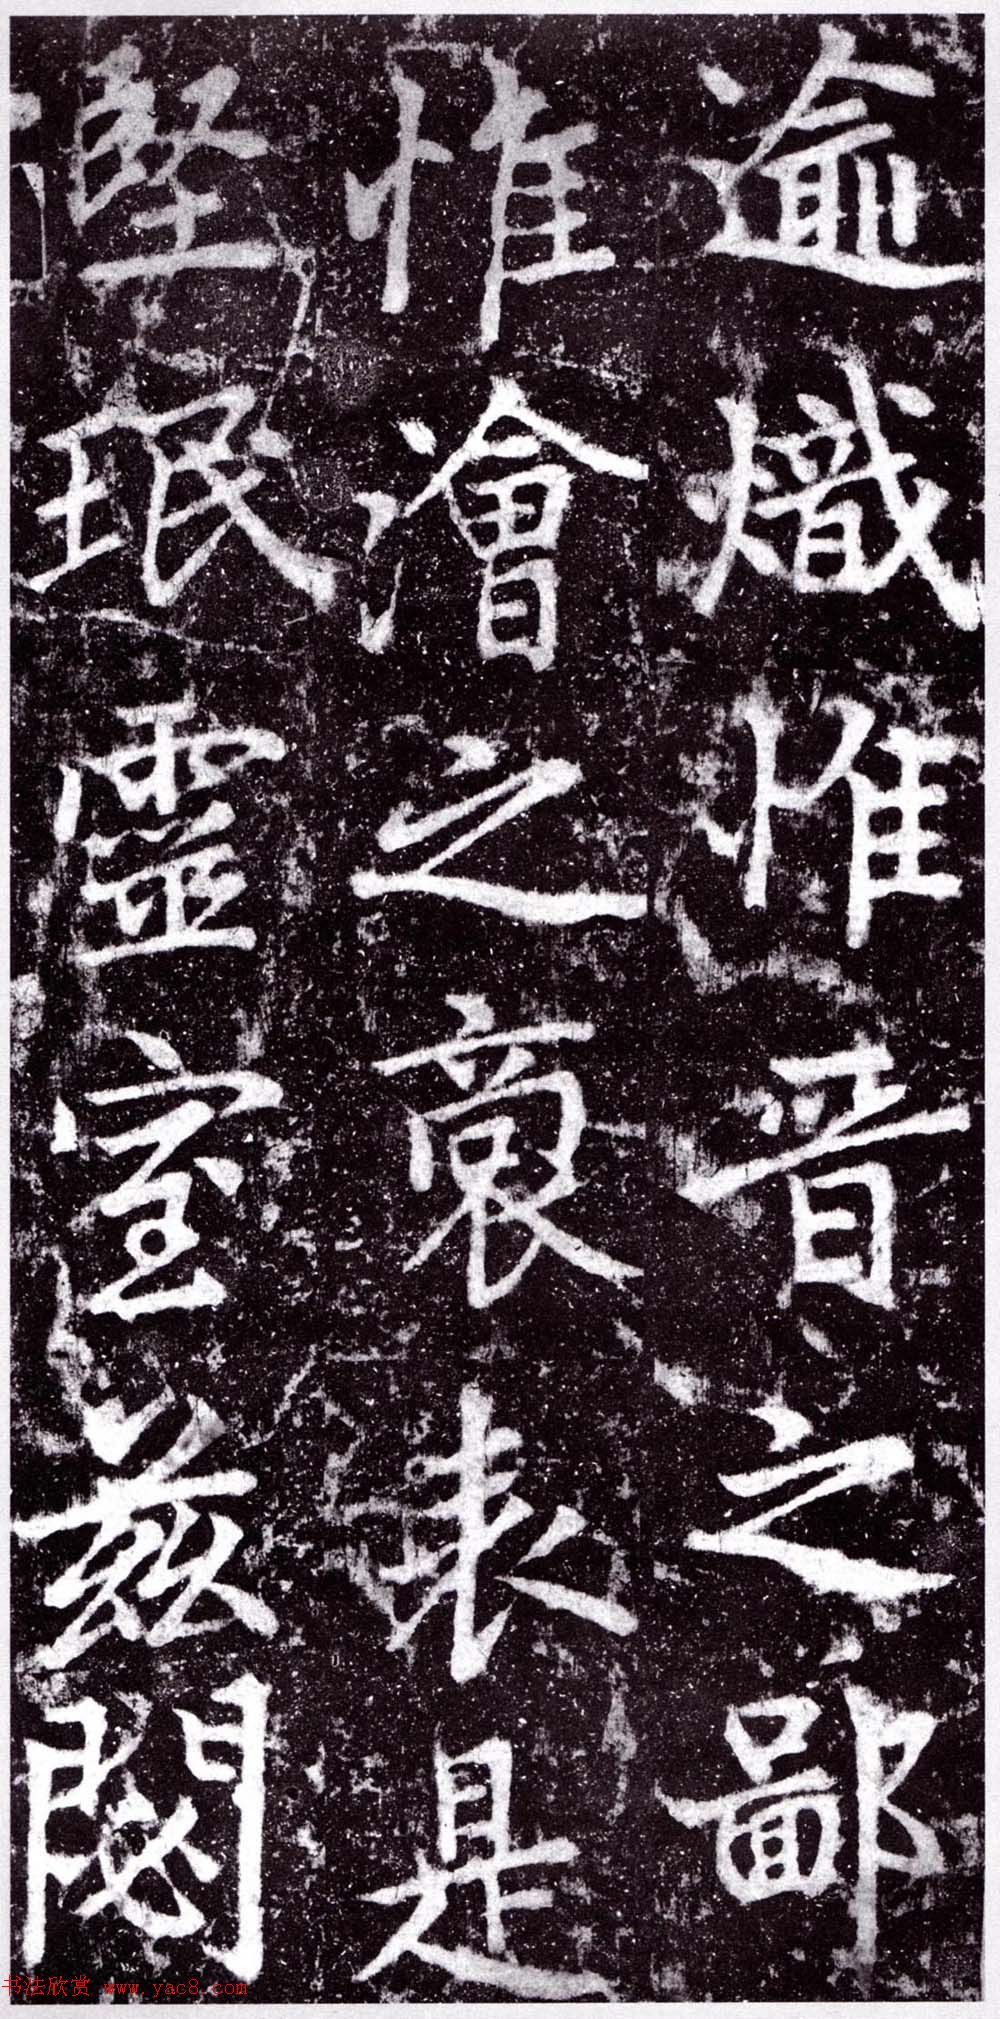 逾熾惟晋之鄙
惟澮之裔表是
堅珉靈室茲閟
书法欣赏 www.yac8.com